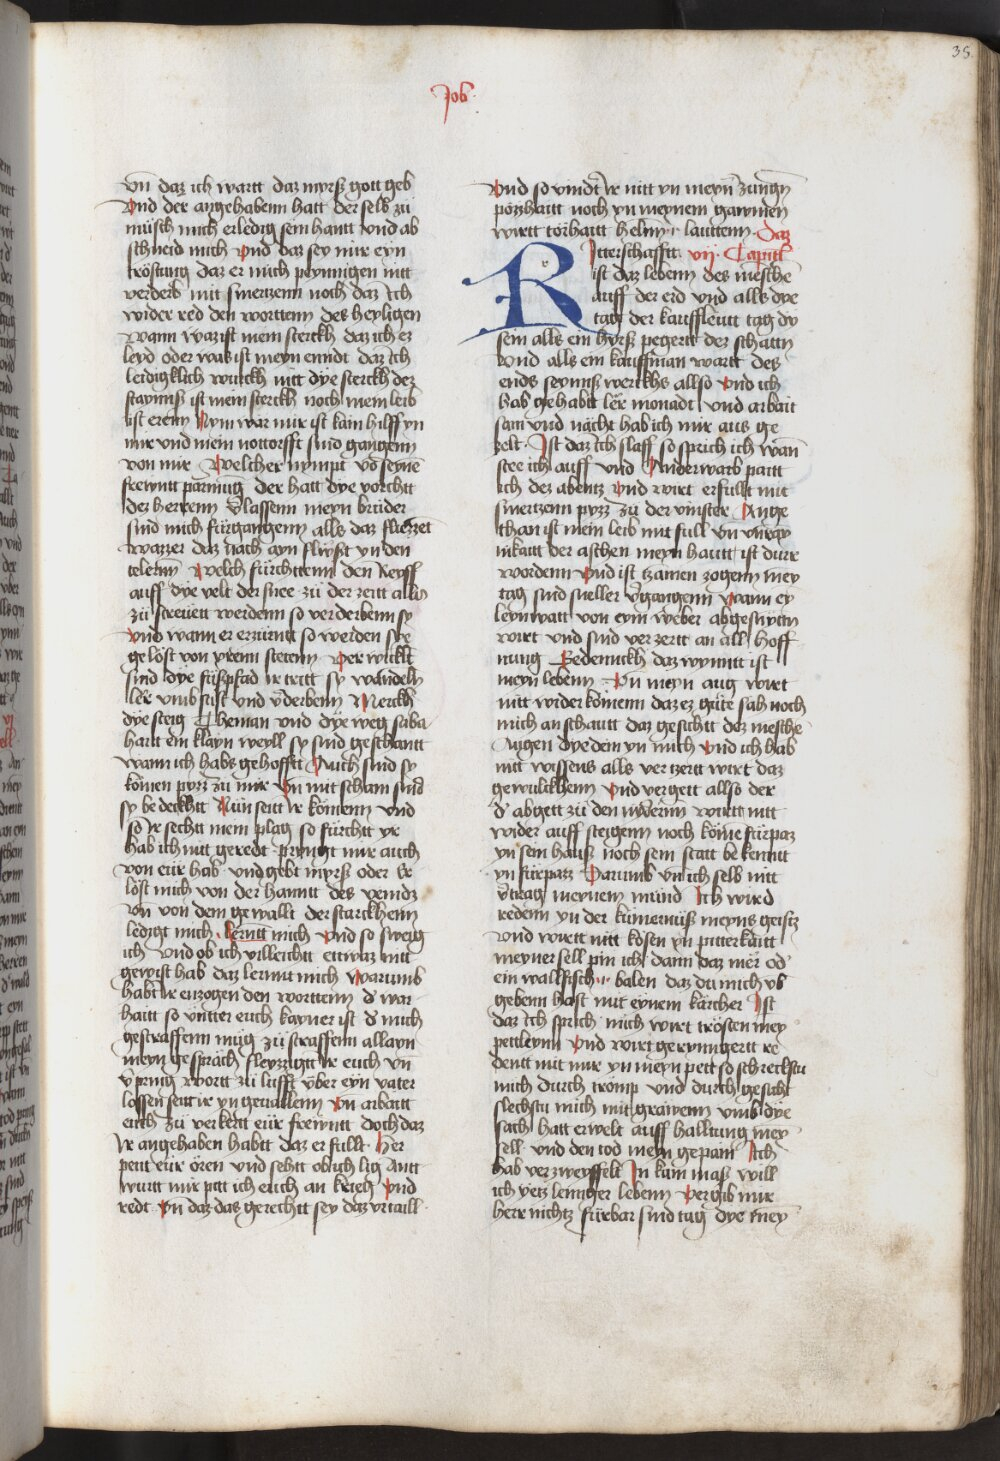 35
Job
vn̄ daz ich wartt daz myrß gott geb
Vnd der angehabenn hatt der selb zü
müsch mich erledig sein hantt vnd ab
schneid mich vnd daz sey mir eyn
tröstung daz er mich peynnigen nit
verderb mit smertzenn noch daz Ich
wider red den worttenn des heyligen
Wann waz ist mein sterckh daz ich ez
leyd oder was ist meyn enndt daz Ich
leidigklich wurckh nitt dye sterckh dez
staynnß ist mein sterckh noch mein leib
ist eren Nym war mir ist kain hilff yn
mir vnd mein nottorfft sind gangenn
von mir Welcher nympt vō seynē
frewntt parmūg der hatt dye vorchtt
dez herrenn V̄lassenn meyn brüder
sind mich fürgangenn alls daz fliezzet
wazzer daz nach ayn flwßt yn den
telernn Welch fürchttenn den Reyff
auff dye velt der snee zü der zeitt alls
zü streüett werdenn so verderbenn sy
vnd wann er erzürntt so werden sye
gelöst von yrenn stetenn Verwicklt
sind dye fußpfad ir tritt sy wandeln
ler vmb sust vnd v̄derbenn Merckh
dye steig Theman vnd dye weg saba
hartt ein klayn weyll sy sind geschantt
wann ich habs gehofftt Auch sind sy
kömen pyzz zü mir Vn̄ mit scham sind
sy bedeckhtt Nün seitt ir kömenn vnd
so ir sechtt mein plag so fürchtt yr
hab ich nit geredt pringt mir auch
von eür hab vnd gebt myrß oder Er
löst mich von der hanntt des veindz
vn̄ von dem gewallt der starckhenn
ledigt mich lerntt mich vnd so sweig
ich vnd ob ich villeichtt ettwaz nitt
gewist hab daz lerntt mich Warumb
habt ir enzogen den worttenn d' war
haitt so vntter euch kayner ist d' mich
gestraffenn müg zü straffenn allayn
meyn gespräch fleyzzigtt ir euch vn̄
v̄pringt wortt zü lufft vber eyn vater
lossen seitt ir yn geuallenn vn̄ arbaitt
euch zü verkertt eür frewntt doch daz
ir angehaben habtt daz erfullt Her
peutt eür ören vnd sehtt ob ich lig Antt
wurtt mir pitt ich euch an krieg vnd
redt Vn̄ daz das gerechtt sey daz vrtaill
Vnd so vindt ir nitt yn meyn̄ zungn̄
pözzhaitt noch yn meynem gawmen
wirtt torhaitt lauttenn Daz
Itterschafftt vij Capittl
R
ist daz lebenn des mēschē
auff der erd vnd alls dye
tag der kauffleutt tag dy
sein alls ein hyrß pegertt dez schattn
vnd alls ein kauffman wartt des
ends seynnß werckhs allso vnd ich
hab gehabtt lër monadt vnd arbait
sam vnd nächt hab ich mir aus ge
zelt Ist daz Ich slaff so sprich ich wan̄
stee ich auff vnd Anderwarb paitt
ich dez abentz vnd wirt erfullt mit
smertzenn pyzz zü der vinster Ange
than ist mein leib mit full vn̄
nikaitt der aschen meyn hautt ist dürr
wordenn vnd ist tzamen zogenn mey
tag sind sneller v̄gangenn wann ey
leynwatt von eym weber abgesnytn̄
wirt vnd sind verzertt an all hoff
nung Gedennckh daz wynntt ist
meyn lebenn Vn̄ meyn aug wirt
nitt widerkömenn daz ez güte sah noch
mich anschautt daz gesichtt dez mēsche
Augen dye dein yn mich vnd ich hab
nit wissens alls verzertt wirt daz
gewülckhenn vnd vergett allso der
d' abgett zü den nyderinn wirtt nitt
wider auff steigenn noch köme fürpaz
yn sein hauß noch sein statt bekenntt
yn fürpazz Darumb vn̄ ich selb nitt
v̄trag meynem mund Ich wird
redenn yn der kümernüß meyns geistz
vnd wirtt nitt kösen yn pitterkaitt
meyner sell pin ich dann daz mer od'
ein wallfisch balen daz du mich vb
gebenn hast mit eynem kärcher Ist
daz Ich sprich mich wirt trösten mey
pettleynn vnd wirt geryngertt re
dentt mit mir yn meyn pett so schreckstu
mich durch trömp vnd durch gesicht
slechstu mich mit gräwenn vmb dye
sach hatt erwelt auff halltung mey
sell vnd den tod meyn gepain Ich
hab verzweyffelt In kain maß will
ich yetz lenniger lebenn Vergib mir
herr nichtz fürbar sind tag dye mey